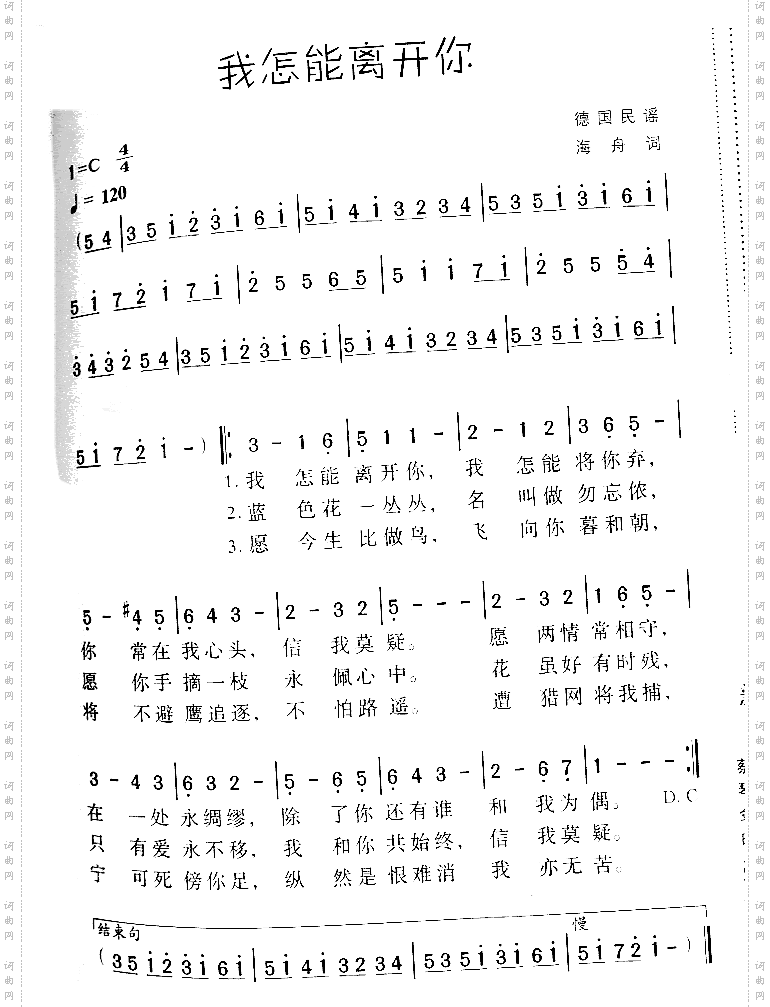 我怎能离开你
德国民谣
海舟词
1=C 4/4
♩= 120
(5 4 | 3 5 i 2 3 i 6 i | 5 i 4 i 3 2 3 4 | 5 3 5 i 3 i 6 i |
5 i 7 2 i 7 i | 2 5 5 6 5 | 5 i i 7 i | 2 5 5 5 4 |
3 4 3 2 5 4 | 3 5 i 2 3 i 6 i | 5 i 4 i 3 2 3 4 | 5 3 5 i 3 i 6 i |
5 i 7 2 i - ) ‖: 3 - 1 6 | 5 1 1 - | 2 - 1 2 | 3 6 5 - |
1.我 怎能 离开你, 我 怎能 将你弃,
2.蓝 色花 一丛丛, 名 叫做 勿忘侬,
3.愿 今生 比做鸟, 飞 向你 暮和朝,
5 - #4 5 | 6 4 3 - | 2 - 3 2 | 5 - - - | 2 - 3 2 | 1 6 5 - |
你 常在 我心头, 信 我莫疑。 愿 两情 常相守,
愿 你手 摘一枝 永 佩心中。 花 虽好 有时残,
将 不避 鹰追逐, 不 怕路遥。 遭 猎网 将我捕,
3 - 4 3 | 6 3 2 - | 5 - 6 5 | 6 4 3 - | 2 - 6 7 | 1 - - - :‖
在 一处 永绸缪, 除 了你 还有谁 和 我为偶。 D.C
只 有爱 永不移, 我 和你 共始终, 信 我莫疑。
宁 可死 傍你足, 纵 然是 恨难消 我 亦无苦。
结束句 慢
( 3 5 i 2 3 i 6 i | 5 i 4 i 3 2 3 4 | 5 3 5 i 3 i 6 i | 5 i 7 2 i - ) ‖
词曲网